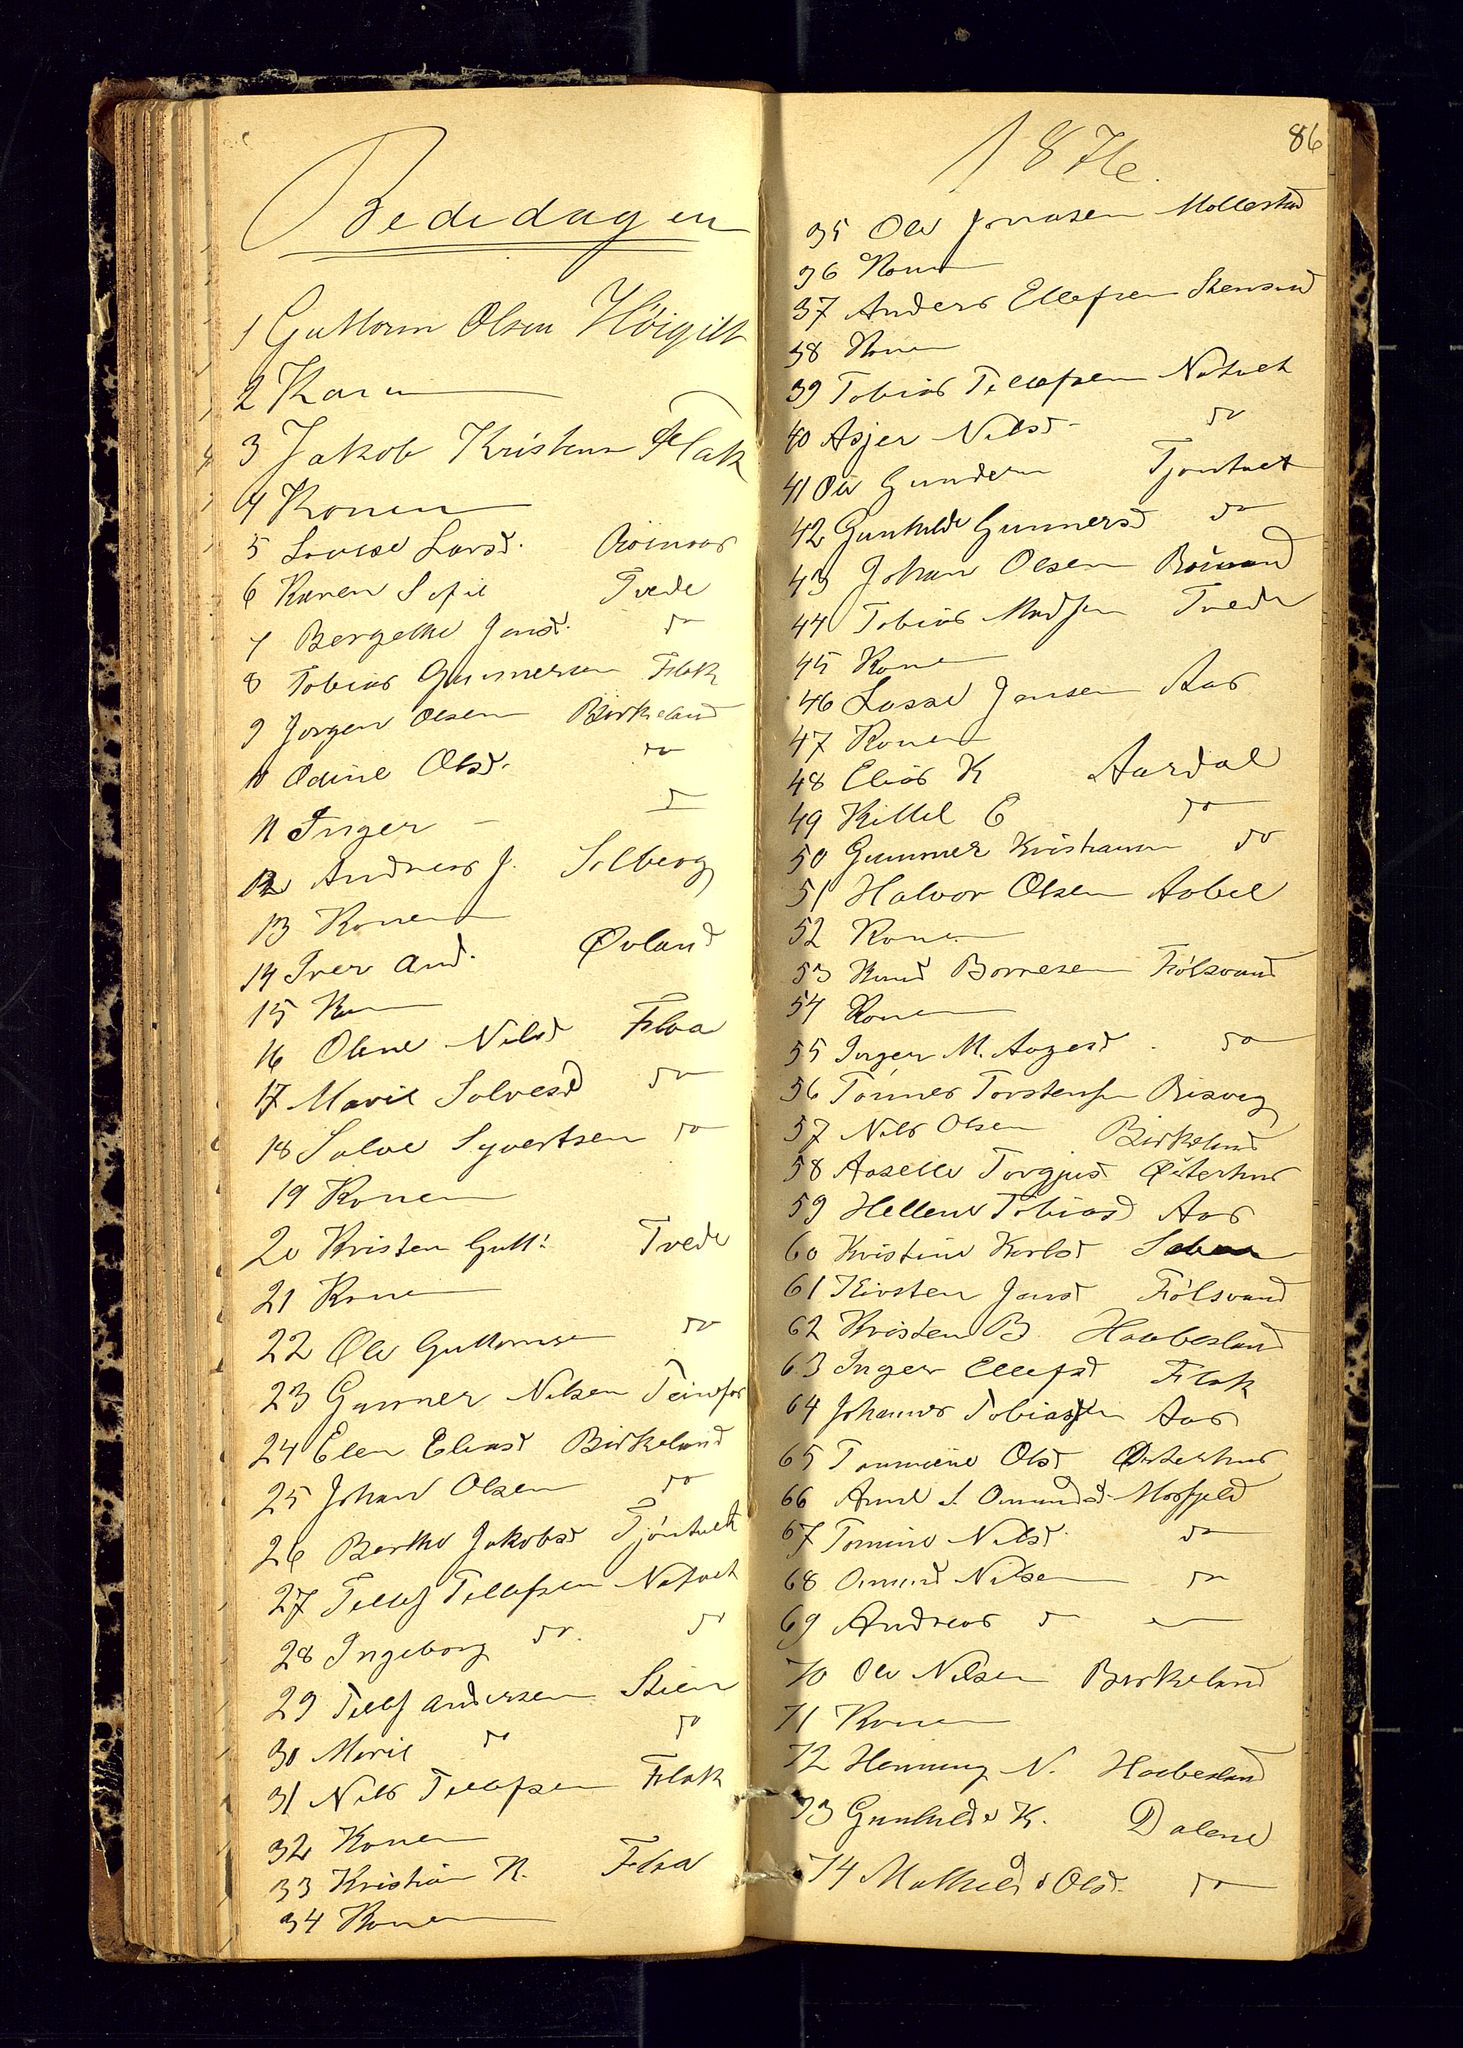 Bededagen
1 Guttorm Olsen Høigilt
2 Karen
3 Jakob Kristens Flak
4 Konen
5 Lovise Larsd.
6 Karen Sofie Tvede
7 Bergethe Jensd. do
8 Tobias Gunnersen Flak
9 Jørgen Olsen Birkeland
10 Odine Olsd. do
11 Inger - do
12 Andreas J. Solberg
13 Konen
14 Iver And. Øvland
15 Kon
16 Olene Nilsd Flaa
17 Marie Solvesd do
18 Salve Syvertsen do
19 Konen
20 Kristen Gutt: Tvede
21 Konen
22 Ole Guttormse do
23 Gunner Nilsen Teinefos
24 Elen Eliasd Birkeland
25 Johan Olsen do
26 Berthe Jakobsd Tjøntvedt
27 Tellef Tellefsen Natvet
28 Ingeborg do. do
29 Tellef Andersen Stien
30 Marie do do
31 Nils Tellefsen Flak
32 Konen
33 Kristian N. Flaa
34 Konen
86
1876.
35 Ole Jonasen Mollestad
36 Konen
37 Anders Ellefsen Stensund
38 Konen
39 Tobias Tellefsen Natvet
40 Asjer Nilsd do
41 Ole Gundersn Tjøntvet
42 Gunhilde Gunnersd do
43 Johan Olsen
44 Tobias Madsen Tvede
45 Konen
46 Lasse Jansen Aas
47 Konen
48 Elias K Aardal
49 Kittel E do
50 Gunner Kristiansen do
51 Halvor Olsen Aabel
52 Konen
53 Knud Bornesen Fiølsvand
54 Konen
55 Inger M. Aagesd. do
56 Tønnes Torstensen Risveg
57 Nils Olsen Birkeland
58 Aaselle Torgjusd Østerhus
59 Hellene Tobiasd Aas
60 Kristine Karlsd
61 Kirsten Jansd Fiølsvand
62 Kristen B. Haabesland
63 Inger Ellefsd Flak
64 Johannes Tobiassen Aas
65 Tommine Olsd Østerhus
66 Anne S. Omundsd Mosfjeld
67 Tomine Nilsd do
68 Omund Nilsen do
69 Andreas do
70 Ole Nilsen Birkeland
71 Konen
72 Henning N. Haabesland
73 Gunhilde K. Dalene
74 Mathilde Olsd. do